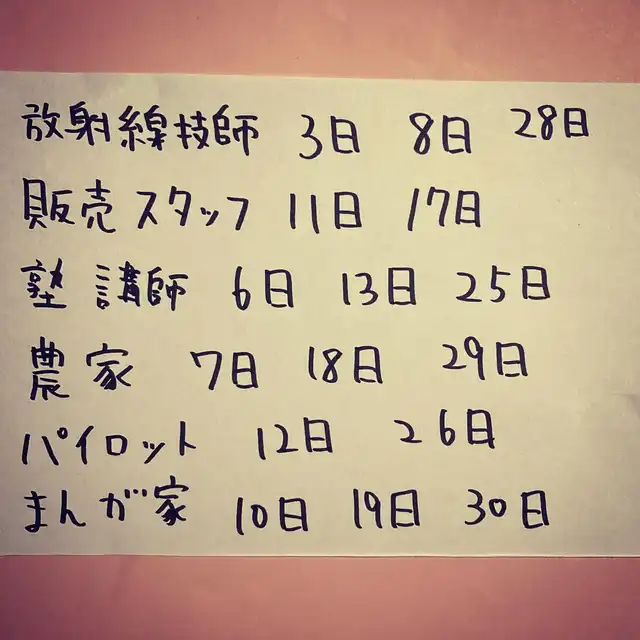 放射線技師 3日 8日 28日
販売スタッフ 11日 17日
塾講師 6日 13日 25日
農家 7日 18日 29日
パイロット 12日 26日
まんが家 10日 19日 30日